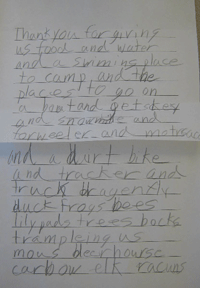 Thank you for giving
us food and water
and a swimming place
to camp and the
places to go on
a boat and get
and snowmobile and
forweeler and
and a durt bike
and tracker and
truck
duck frogs bees
lilypads trees bocks
trampleing us
mous deer hourse
carbow elk racuns